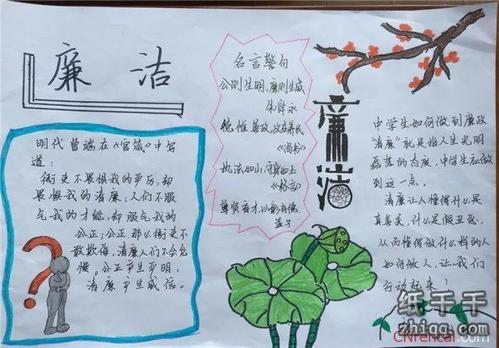 廉洁
明代曾瑞在《官箴》中写
道:
街吏不畏惧我的严厉,却
畏惧我的清廉,人们不服
气我的才能,却服气我的
公正;公正那么街吏不
敢欺侮,清廉人们不会怠
慢。公正产生严明,
清廉产生威信。
名言警句
公则生明,廉则生威
朱舜水
德惟善政,政在养民
《尚书》
执法如山,守身如玉
《格言》
孟子
廉洁
中学生如何做到廉政
"清廉"就是指人生光明
磊落的态度,中学生应做
到这一点。
清廉让人懂得什么是
真善美,什么是假丑恶,
从而懂得做什么样的人
如何做人,让我们
行动起来!
纸千千
zhiqq.com
CNrencai.com